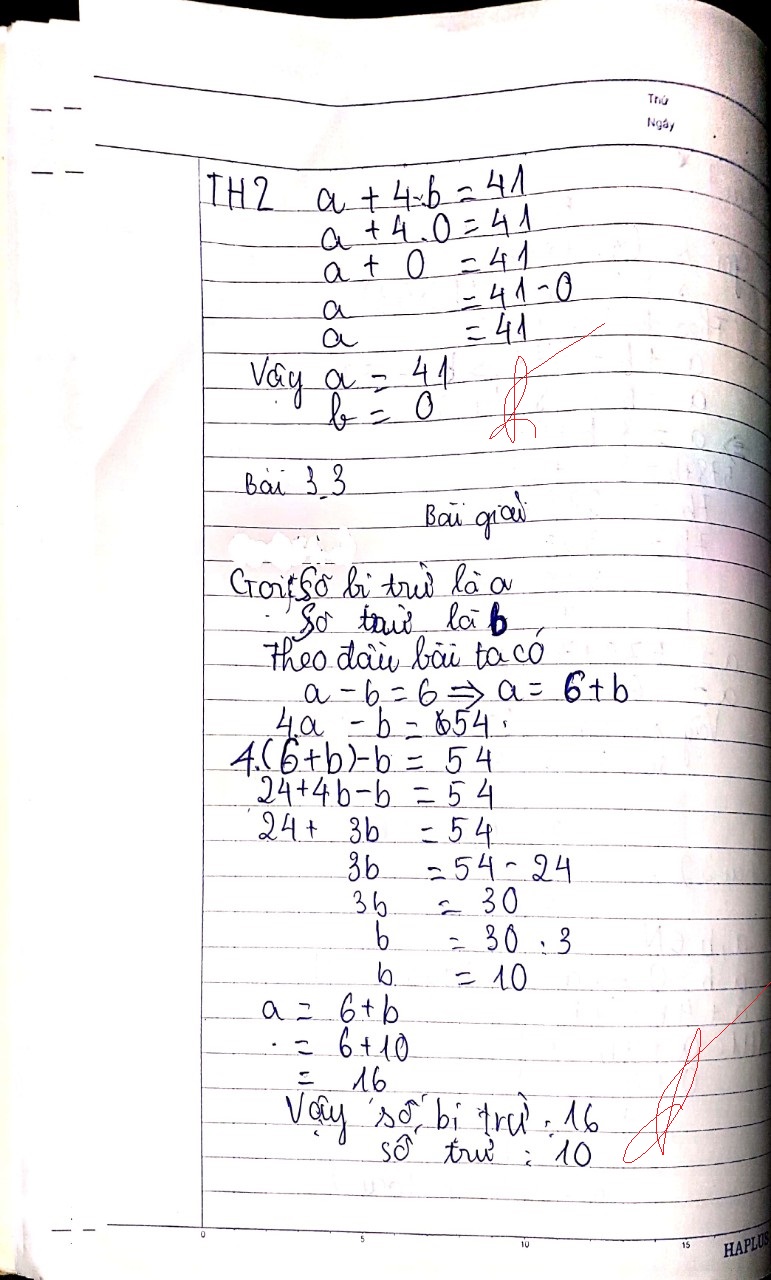 Thứ
Ngày
TH2 a + 4.b = 41
a + 4.0 = 41
a + 0 = 41
a = 41 - 0
a = 41
Vậy a = 41
b = 0
Bài 3.3
Bài giải
Gọi số bị trừ là a
Số trừ là b
Theo đầu bài ta có
a - b = 6 => a = 6 + b
4.a - b = 54
4.(6+b)-b = 54
24+4b-b = 54
24 + 3b = 54
3b = 54 - 24
3b = 30
b = 30 : 3
b = 10
a = 6+b
= 6+10
= 16
Vậy số bị trừ : 16
số trừ : 10
0 5 10 15
HAPLUS